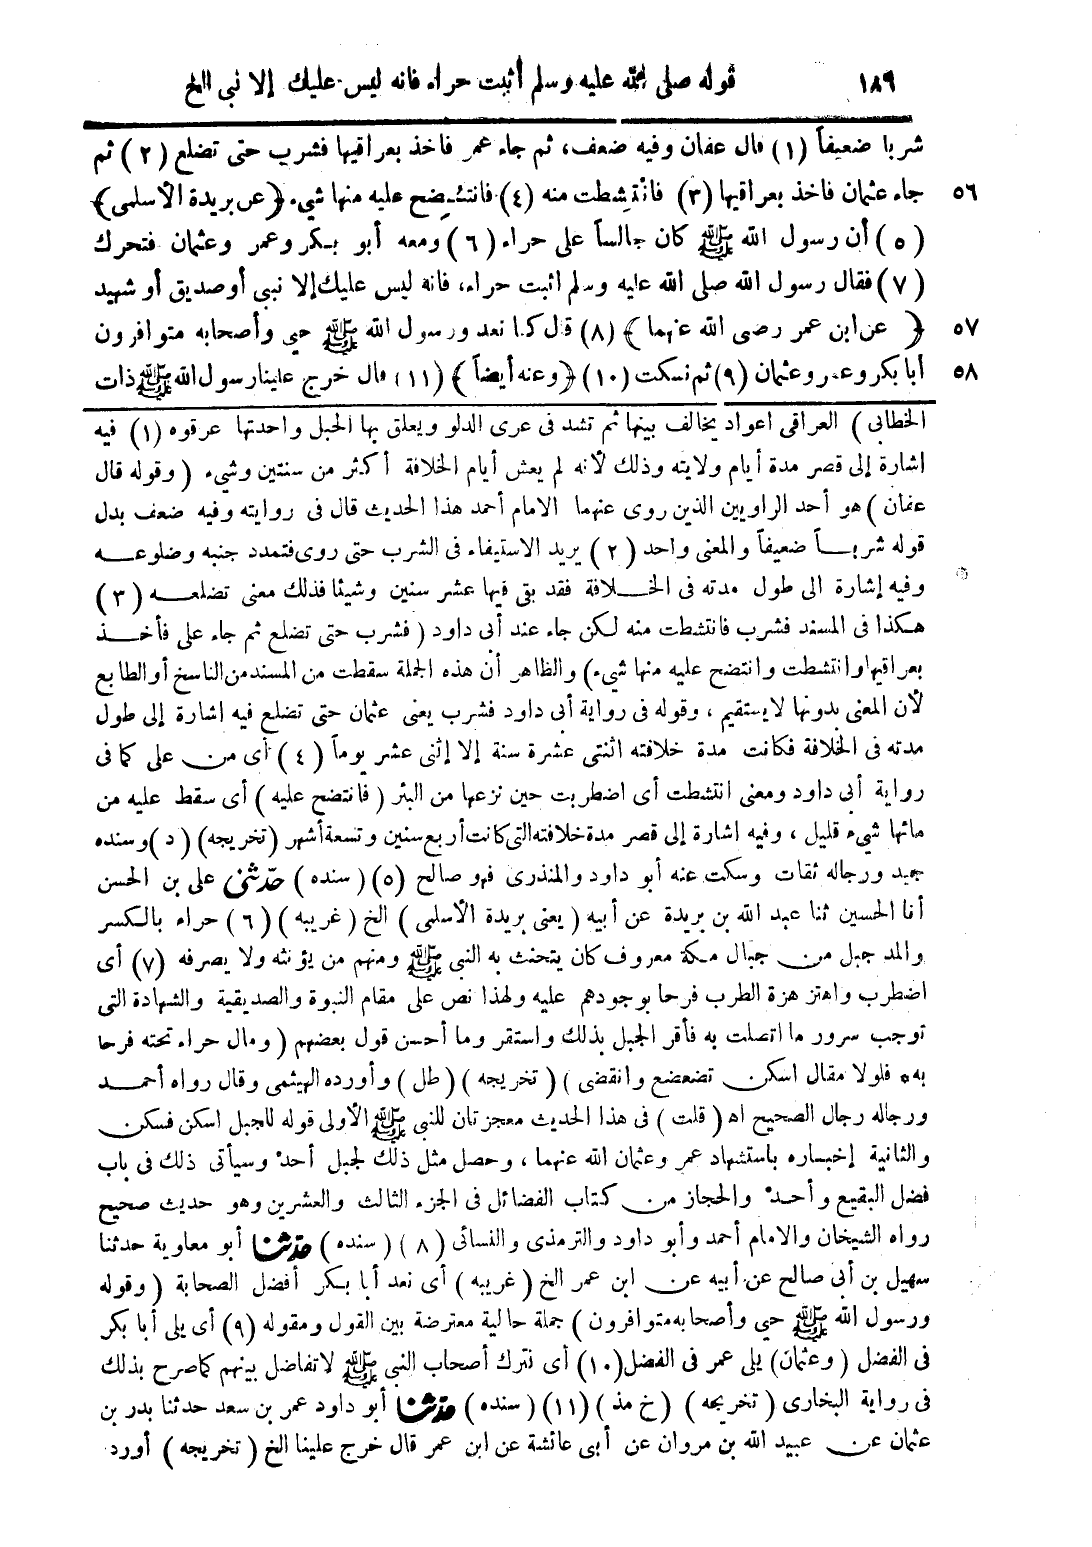 ١٨٩ قوله صلى الله عليه وسلم أثبت حراء فانه ليس عليك إلا نبي الخ
شربا ضعيفاً (١) قال عفان وفيه ضعف، ثم جاء عمر فاخذ بعراقيها فشرب حتى تضلع (٢) ثم
٥٦ جاء عثمان فاخذ بعراقيها (٣) فانتشطت منه (٤) فانتضح عليه منها شيء ﴿عن بريدة الأسلمى﴾
(٥) أن رسول الله ﷺ كان جالساً على حراء (٦) ومعه أبو بكر وعمر وعثمان فتحرك
(٧) فقال رسول الله صلى الله عليه وسلم اثبت حراء، فانه ليس عليك إلا نبي أو صديق أو شهيد
٥٧ ﴿عن ابن عمر رضى الله عنهما﴾ (٨) قال كنا نعد ورسول الله ﷺ حي وأصحابه متوافرون
٥٨ أبا بكر وعمر وعثمان (٩) ثم نسكت (١٠) ﴿وعنه أيضاً﴾ (١١) قال خرج علينا رسول الله ﷺ ذات
الخطابى) العراقى اعواد يخالف بينها ثم تشد فى عرى الدلو ويعلق بها الحبل واحدتها عرقوه (١) فيه
اشارة إلى قصر مدة أيام ولايته وذلك لأنه لم يعش أيام الخلافة أكثر من سنتين وشيء (وقوله قال
عفان) هو أحد الراويين الذين روى عنهما الامام أحمد هذا الحديث قال فى روايته وفيه ضعف بدل
قوله شربـاً ضعيفاً والمعنى واحد (٢) يريد الاستيفاء فى الشرب حتى روى فتمدد جنبه وضلوعه
وفيه إشارة الى طول مدته فى الخلافة فقد بقى فيها عشر سنين وشيئا فذلك معنى تضلعه (٣)
هكذا فى المسند فشرب فانتشطت منه لكن جاء عند أبى داود (فشرب حتى تضلع ثم جاء على فأخذ
بعراقيها وانتشطت وانتضح عليه منها شيء) والظاهر أن هذه الجملة سقطت من المسند من الناسخ أو الطابع
لأن المعنى بدونها لا يستقيم، وقوله فى رواية أبى داود فشرب يعنى عثمان حتى تضلع فيه اشارة إلى طول
مدته فى الخلافة فكانت مدة خلافته اثنتى عشرة سنة إلا إثنى عشر يوماً (٤) أى من على كما فى
رواية أبى داود ومعنى انتشطت أى اضطربت حين نزعها من البئر (فانتضح عليه) أى سقط عليه من
مائها شيء قليل، وفيه اشارة إلى قصر مدة خلافته التى كانت أربع سنين وتسعة أشهر (تخريجه) (د) وسنده
جيد ورجاله ثقات وسكت عنه أبو داود والمنذرى فهو صالح (٥) (سنده) حدثنى على بن الحسن
أنا الحسين ثنا عبد الله بن بريدة عن أبيه (يعنى بريدة الأسلمى) الخ (غريبه) (٦) حراء بالكسر
والمد جبل من جبال مكة معروف كان يتحنث به النبى ﷺ ومنهم من يؤنثه ولا يصرفه (٧) أى
اضطرب واهتز هزة الطرب فرحا بوجودهم عليه ولهذا نص على مقام النبوة والصديقية والشهادة التى
توجب سرور ما اتصلت به فأقر الجبل بذلك واستقر وما أحسن قول بعضهم (ومال حراء تحته فرحا
به* فلولا مقال اسكن تضعضع وانقضى) (تخريجه) (طل) وأورده الهيثمى وقال رواه أحمد
ورجاله رجال الصحيح اه (قلت) فى هذا الحديث معجزتان للنبى ﷺ الأولى قوله للجبل اسكن فسكن
والثانية إخباره باستشهاد عمر وعثمان الله عنهما، وحصل مثل ذلك لجبل أحدٌ وسيأتى ذلك فى باب
فضل البقيع وأحدٌ والحجاز من كتاب الفضائل فى الجزء الثالث والعشرين وهو حديث صحيح
رواه الشيخان والامام أحمد وأبو داود والترمذى والنسائى (٨) (سنده) حدثنا أبو معاوية حدثنا
سهيل بن أبى صالح عن أبيه عن ابن عمر الخ (غريبه) أى نعد أبا بكر أفضل الصحابة (وقوله
ورسول الله ﷺ حي وأصحابه متوافرون) جملة حالية معترضة بين القول ومقوله (٩) أى يلى أبا بكر
فى الفضل (وعثمان) يلى عمر فى الفضل (١٠) أى نترك أصحاب النبى ﷺ لا تفاضل بينهم كما صرح بذلك
فى رواية البخارى (تخريجه) (خ مذ) (١١) (سنده) حدثنا أبو داود عمر بن سعد حدثنا بدر بن
عثمان عن عبيد الله بن مروان عن أبى عائشة عن ابن عمر قال خرج علينا الخ (تخريجه) أورد